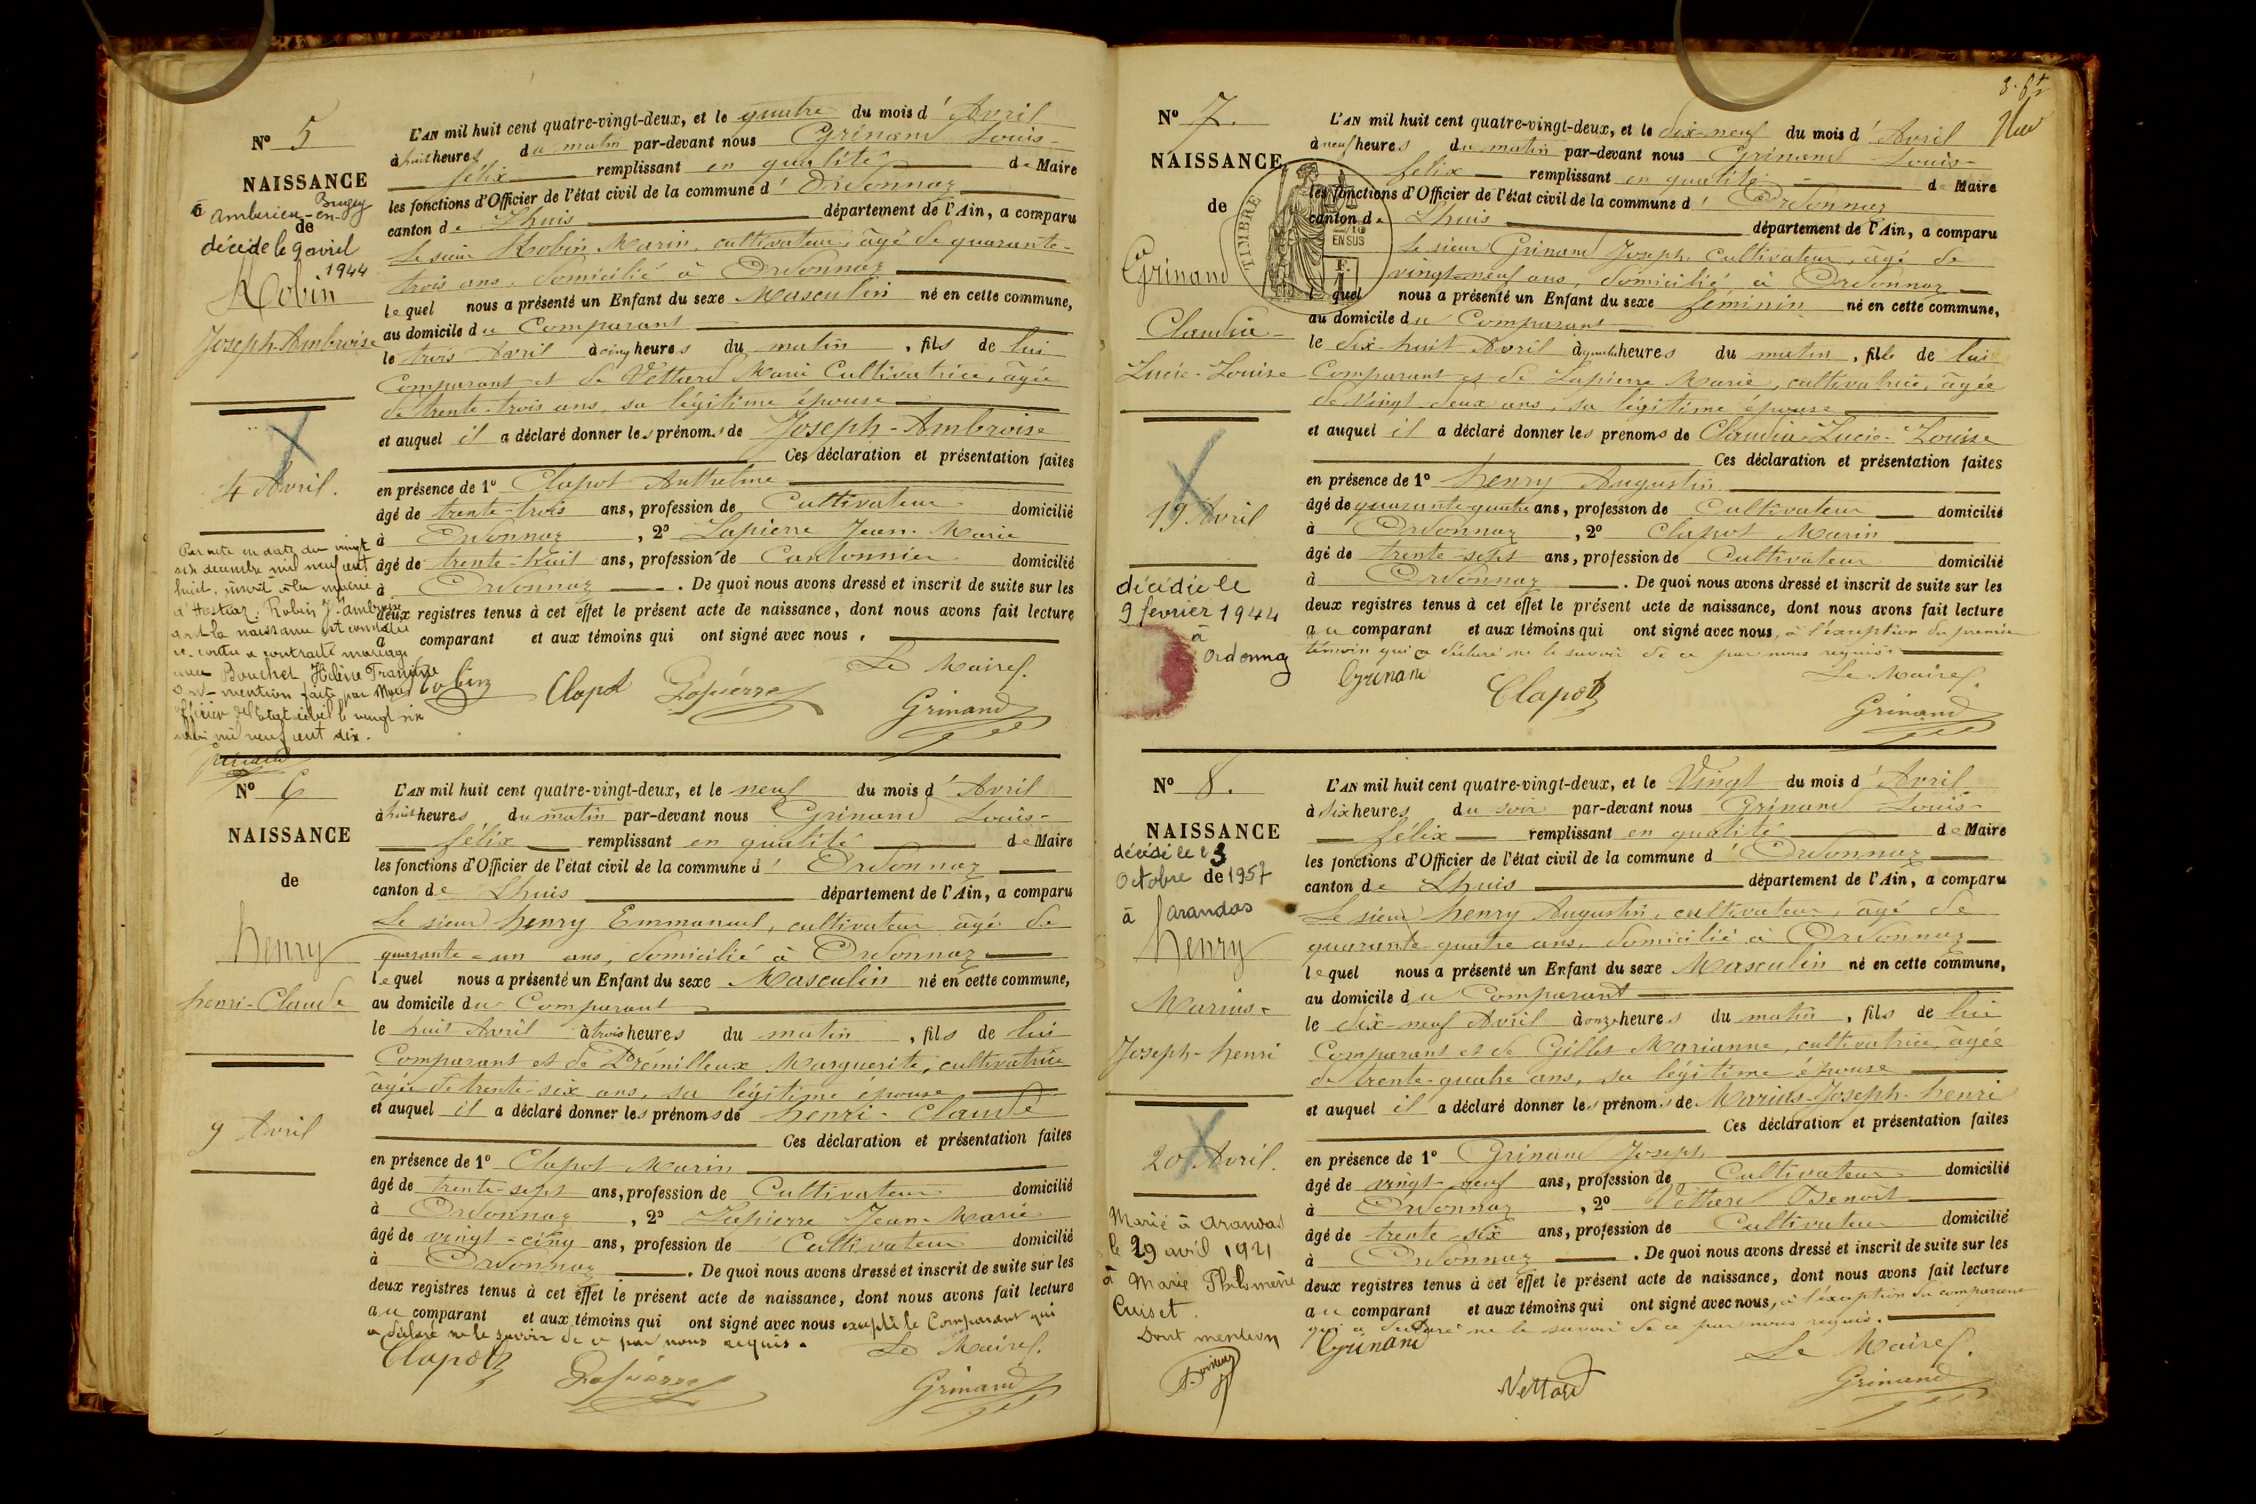 N° 5
NAISSANCE
à Ambérieu-en-
Bugey
de
décédé le 9 avril
1944
Robin
Joseph-Ambroise
4 Avril.
Par acte en date du vingt
six décembre mil neuf cent
huit, inscrit à la mairie
d'Hostiaz, Robin J. Ambroise
dont la naissance est constatée
ci-contre a contracté mariage
avec Bouchet Hélène Françoise
mention faite par Nous
officier de l'Etat civil le vingt six
mil neuf cent dix.
Grinand
L'AN mil huit cent quatre-vingt-deux, et le quatre du mois d'Avril
à huit heures du matin par-devant nous Grinand Louis-
félix remplissant en qualité de Maire
les fonctions d'Officier de l'état civil de la commune d'Ordonnaz
canton de Lhuis département de l'Ain, a comparu
Le sieur Robin Marin, cultivateur, âgé de quarante-
trois ans, domicilié à Ordonnaz
lequel nous a présenté un Enfant du sexe Masculin né en cette commune,
au domicile du Comparant
le trois Avril à cinq heures du matin, fils de lui
Comparant et de Vettard Marie Cultivatrice, âgée
de trente-trois ans, sa légitime épouse
et auquel il a déclaré donner les prénoms de Joseph-Ambroise
Ces déclaration et présentation faites
en présence de 1° Clapot Anthelme
âgé de trente-trois ans, profession de Cultivateur domicilié
à Ordonnaz, 2° Lapierre Jean-Marie
âgé de trente-huit ans, profession de Cantonnier domicilié
à Ordonnaz. De quoi nous avons dressé et inscrit de suite sur les
deux registres tenus à cet effet le présent acte de naissance, dont nous avons fait lecture
au comparant et aux témoins qui ont signé avec nous.
Robin Clapot Lapierre Le Maire.
Grinand
N° 6
NAISSANCE
de
henry
henri-Claude
9 Avril
L'AN mil huit cent quatre-vingt-deux, et le neuf du mois d'Avril
à huit heures du matin par-devant nous Grinand Louis-
félix remplissant en qualité de Maire
les fonctions d'Officier de l'état civil de la commune d'Ordonnaz
canton de Lhuis département de l'Ain, a comparu
Le sieur henry Emmanuel, cultivateur âgé de
quarante-un ans, domicilié à Ordonnaz
lequel nous a présenté un Enfant du sexe Masculin né en cette commune,
au domicile du Comparant
le huit Avril à trois heures du matin, fils de lui
Comparant et de Prémilleux Marguerite, cultivatrice
âgée de trente-six ans, sa légitime épouse
et auquel il a déclaré donner les prénoms de henri-Claude
Ces déclaration et présentation faites
en présence de 1° Clapot Marin
âgé de trente-sept ans, profession de Cultivateur domicilié
à Ordonnaz, 2° Lapierre Jean-Marie
âgé de vingt-cinq ans, profession de Cultivateur domicilié
à Ordonnaz. De quoi nous avons dressé et inscrit de suite sur les
deux registres tenus à cet effet le présent acte de naissance, dont nous avons fait lecture
au comparant et aux témoins qui ont signé avec nous excepté le Comparant qui
a déclaré ne le savoir de ce par nous requis.
Le Maire.
Clapot Lapierre Grinand
N° 7.
NAISSANCE
de
Grinand
Claudia-
Lucie-Louise
19 Avril
décédée le
9 février 1944
à
Ordonnaz
TIMBRE
2/10
EN SUS
L'AN mil huit cent quatre-vingt-deux, et le dix-neuf du mois d'Avril
à neuf heures du matin par-devant nous Grinand Louis-
félix remplissant en qualité de Maire
les fonctions d'Officier de l'état civil de la commune d'Ordonnaz
canton de Lhuis département de l'Ain, a comparu
Le sieur Grinand Joseph Cultivateur, âgé de
vingt-neuf ans, domicilié à Ordonnaz
lequel nous a présenté un Enfant du sexe féminin né en cette commune,
au domicile du Comparant
le dix-huit Avril à quatre heures du matin, fille de lui
Comparant et de Lapierre Marie, cultivatrice, âgée
de vingt-deux ans, sa légitime épouse
et auquel il a déclaré donner les prénoms de Claudia-Lucie-Louise
Ces déclaration et présentation faites
en présence de 1° henry Augustin
âgé de quarante-quatre ans, profession de Cultivateur domicilié
à Ordonnaz, 2° Clapot Marin
âgé de trente-sept ans, profession de Cultivateur domicilié
à Ordonnaz. De quoi nous avons dressé et inscrit de suite sur les
deux registres tenus à cet effet le présent acte de naissance, dont nous avons fait lecture
au comparant et aux témoins qui ont signé avec nous, à l'exception du premier
témoin qui a déclaré ne le savoir de ce par nous requis.
Grinand Clapot Le Maire.
Grinand
N° 8.
NAISSANCE
décédé le 13
Octobre de 1957
à Arandas
henry
Marius-
Joseph-henri
20 Avril.
Marié à Arandas
le 29 avril 1921
à Marie Philomène
Cuiset.
Dont mention
L'AN mil huit cent quatre-vingt-deux, et le Vingt du mois d'Avril
à six heures du soir par-devant nous Grinand Louis-
félix remplissant en qualité de Maire
les fonctions d'Officier de l'état civil de la commune d'Ordonnaz
canton de Lhuis département de l'Ain, a comparu
Le sieur henry Augustin, cultivateur, âgé de
quarante-quatre ans, domicilié à Ordonnaz
lequel nous a présenté un Enfant du sexe Masculin né en cette commune,
au domicile du Comparant
le dix-neuf Avril à onze heures du matin, fils de lui
Comparant et de Gilles Marianne, cultivatrice, âgée
de trente-quatre ans, sa légitime épouse
et auquel il a déclaré donner les prénoms de Marius-Joseph-henri
Ces déclaration et présentation faites
en présence de 1° Grinand Joseph
âgé de vingt-neuf ans, profession de Cultivateur domicilié
à Ordonnaz, 2° Vettard Benoît
âgé de trente-six ans, profession de Cultivateur domicilié
à Ordonnaz. De quoi nous avons dressé et inscrit de suite sur les
deux registres tenus à cet effet le présent acte de naissance, dont nous avons fait lecture
au comparant et aux témoins qui ont signé avec nous, à l'exception du comparant
qui a déclaré ne le savoir de ce par nous requis.
Grinand Vettard Le Maire.
Grinand